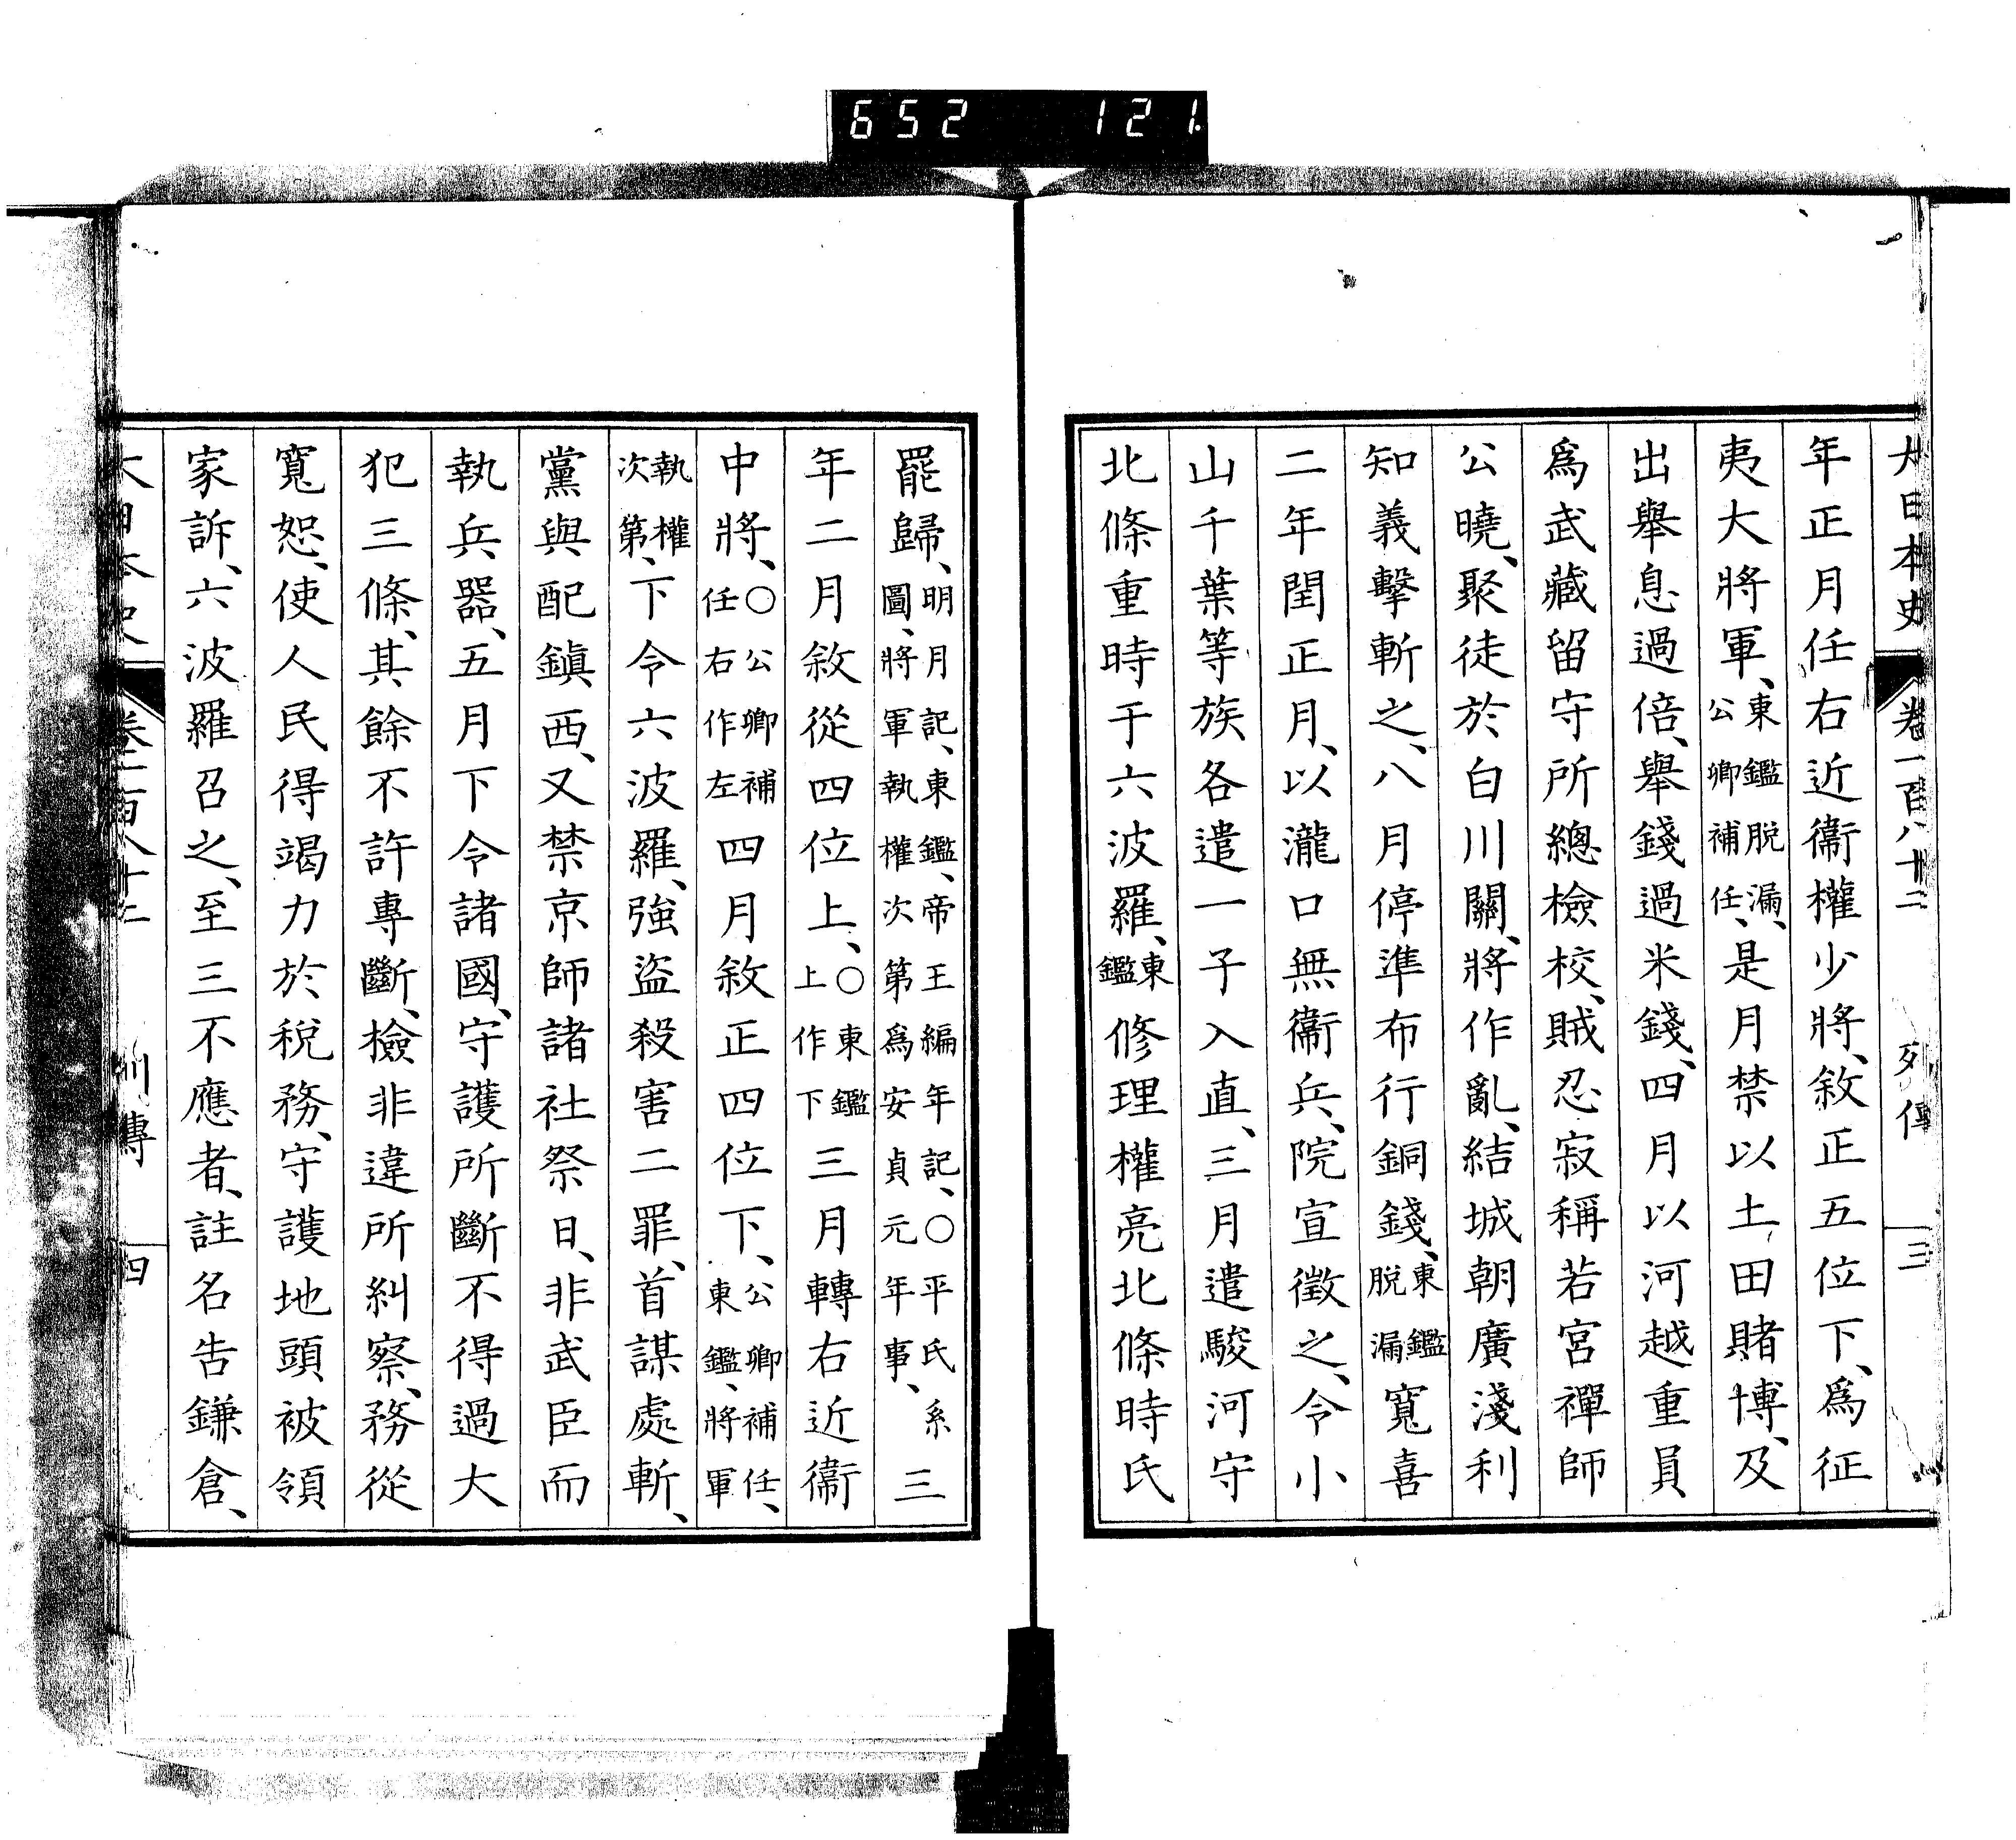 652 121.
大日本史 卷一百八十二 列傳 三
年正月任右近衞權少將、敘正五位下、爲征
夷大將軍、東鑑脱漏、公卿補任、是月禁以土田賭博、及
出舉息過倍、舉錢過米錢、四月以河越重員
爲武藏留守所總檢校、賊忍寂稱若宮禪師
公曉、聚徒於白川關、將作亂、結城朝廣淺利
知義擊斬之、八月停準布行銅錢、東鑑脱漏寬喜
二年閏正月、以瀧口無衞兵、院宣徵之、令小
山千葉等族各遣一子入直、三月遣駿河守
北條重時于六波羅、東鑑修理權亮北條時氏
罷歸、明月記、東鑑、帝王編年記、〇平氏系圖、將軍執權次第爲安貞元年事、三
年二月敘從四位上、〇東鑑上作下三月轉右近衞
中將、〇公卿補任右作左四月敘正四位下、公卿補任、東鑑、將軍
執權次第、下令六波羅、強盜殺害二罪、首謀處斬、
黨與配鎭西、又禁京師諸社祭日、非武臣而
執兵器、五月下令諸國、守護所斷不得過大
犯三條、其餘不許專斷、檢非違所糾察、務從
寬恕、使人民得竭力於稅務、守護地頭被領
家訴、六波羅召之、至三不應者、註名告鎌倉、
大日本史 卷一百八十二 列傳 四